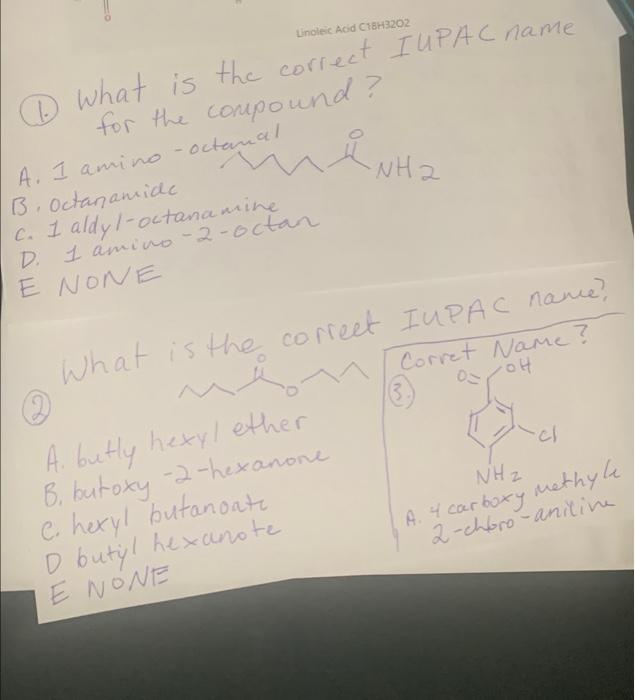 O
Linoleic Acid C18H32O2
1. What is the correct IUPAC name
for the compound?
A. 1 amino-octanal
B. octanamide
C. 1 aldyl-octanamine
D. 1 amino-2-octan
E NONE
O
NH2
2 What is the correct IUPAC name?
O
O
A. butly hexyl ether
B. butoxy-2-hexanone
C. hexyl butanoate
D butyl hexanote
E NONE
Corret Name?
3.
O OH
Cl
NH2
A. 4 carboxy methyle
2-chloro-aniline